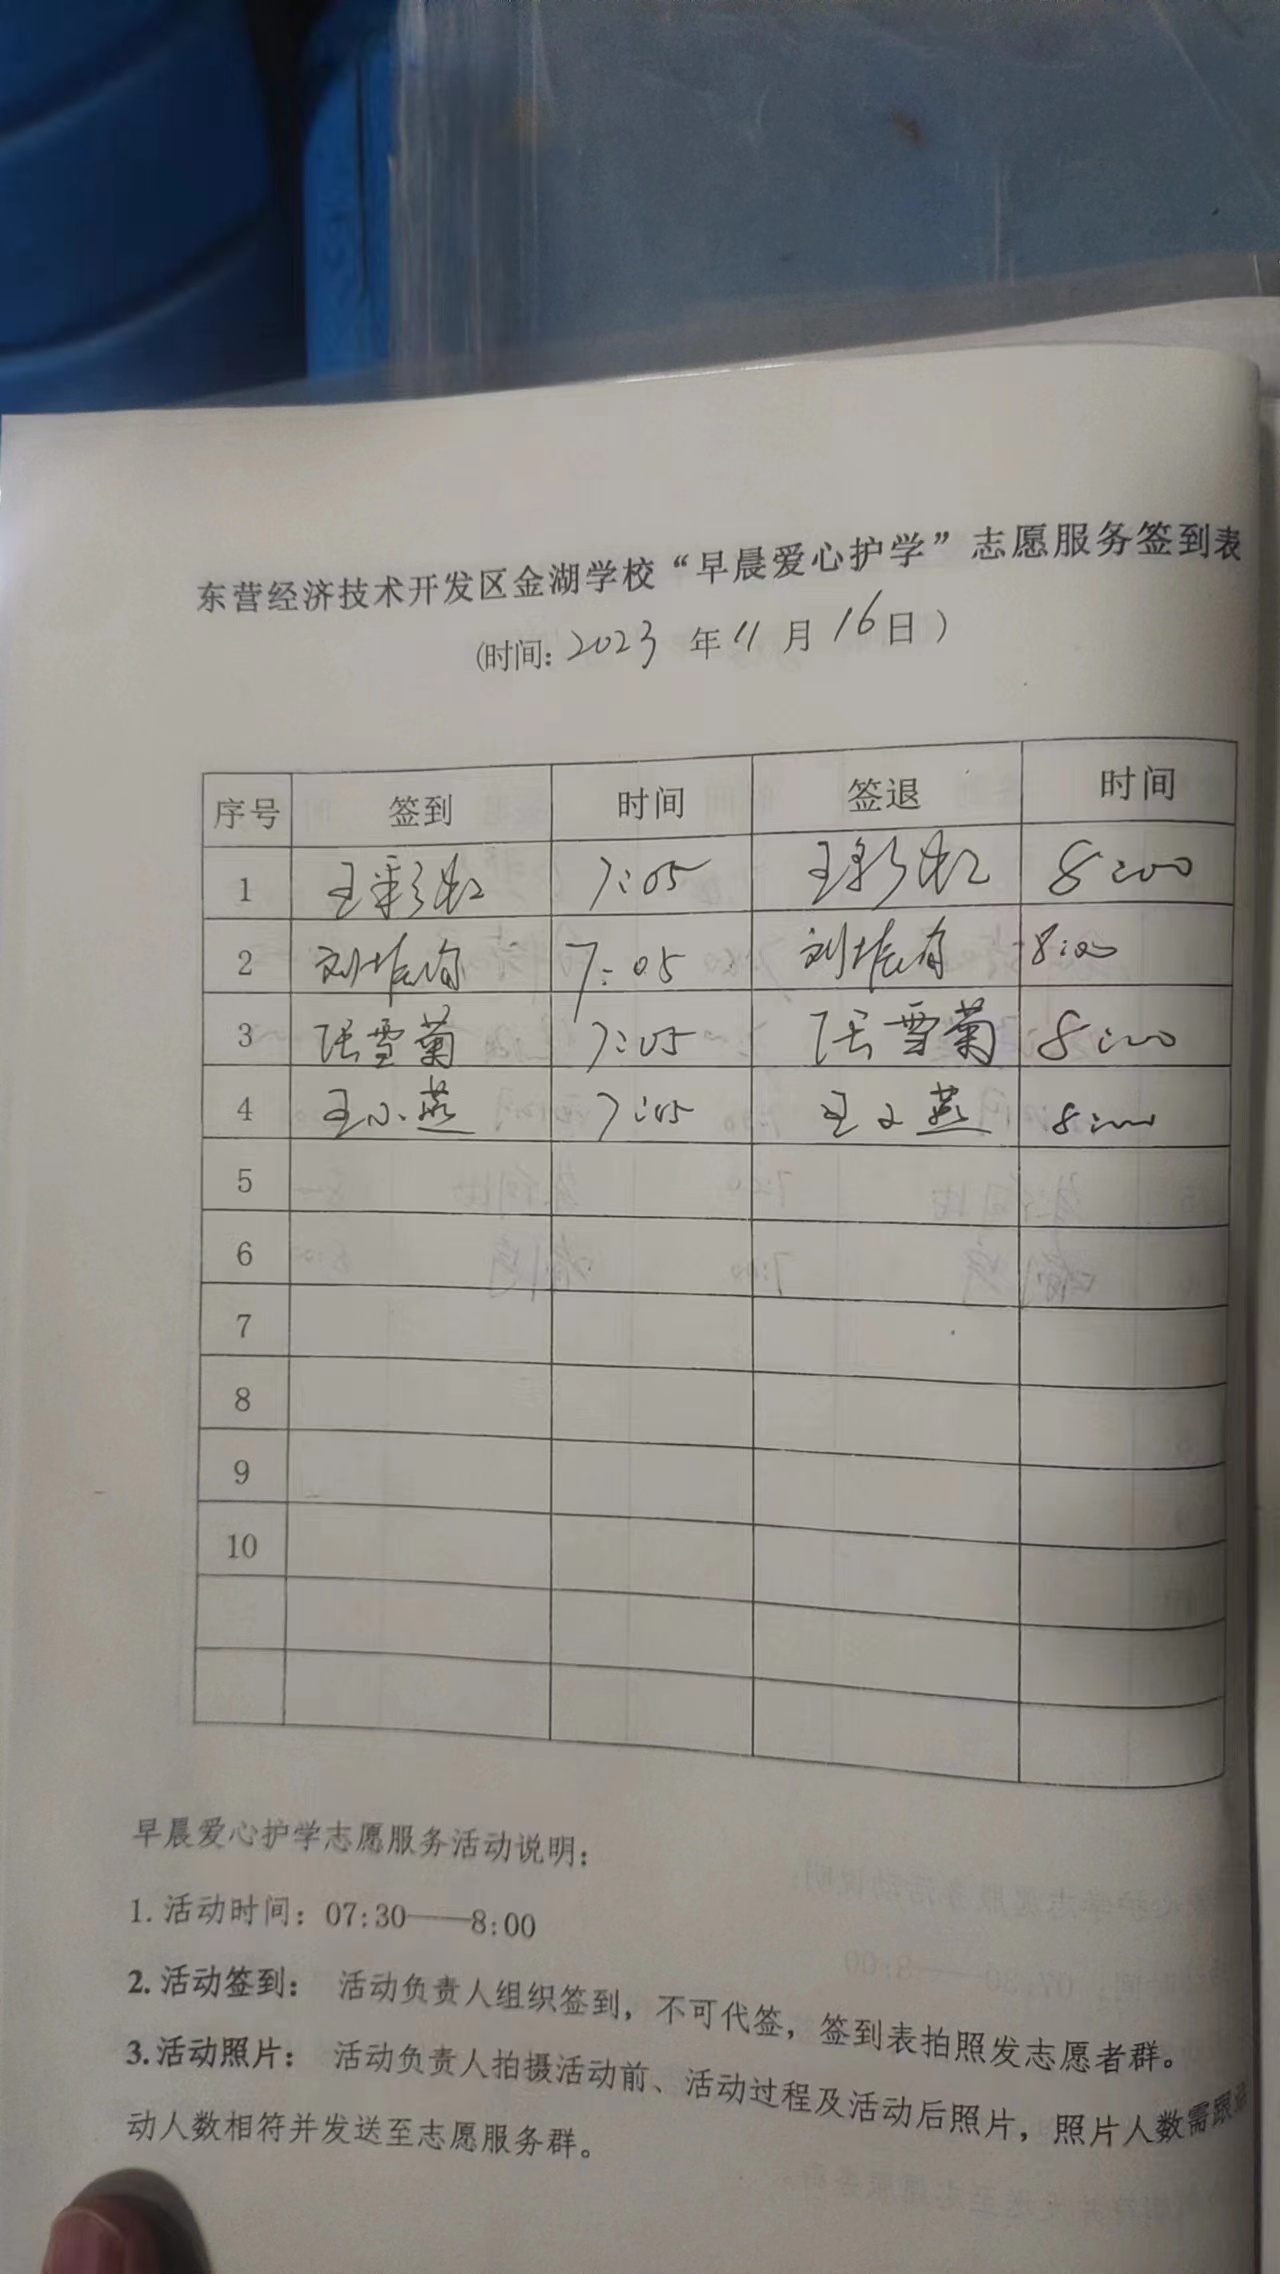 东营经济技术开发区金湖学校“早晨爱心护学”志愿服务签到表
(时间: 2023 年 11 月 16 日 )
序号 签到 时间 签退 时间
1 王彩虹 7:05 王彩虹 8:00
2 刘 7:05 刘 8:00
3 张雪菊 7:05 张雪菊 8:00
4 王小燕 7:05 王小燕 8:00
5
6
7
8
9
10
早晨爱心护学志愿服务活动说明:
1. 活动时间: 07:30——8:00
2. 活动签到: 活动负责人组织签到, 不可代签, 签到表拍照发志愿者群。
3. 活动照片: 活动负责人拍摄活动前、活动过程及活动后照片, 照片人数需跟
动人数相符并发送至志愿服务群。